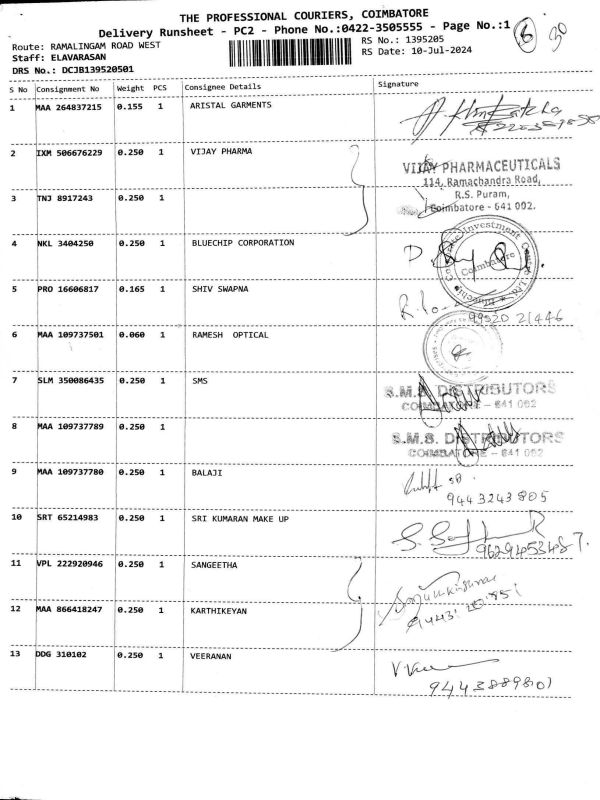 THE PROFESSIONAL COURIERS, COIMBATORE
Delivery Runsheet - PC2 - Phone No.:0422-3505555 - Page No.:1
6 30
Route: RAMALINGAM ROAD WEST
RS No.: 1395205
Staff: ELAVARASAN
RS Date: 10-Jul-2024
DRS No.: DCJB139520501
S No Consignment No Weight PCS Consignee Details Signature
1 MAA 264837215 0.155 1 ARISTAL GARMENTS
2 IXM 506676229 0.250 1 VIJAY PHARMA
VIJAY PHARMACEUTICALS
114, Ramachandra Road,
3 TNJ 8917243 0.250 1
R.S. Puram,
Coimbatore - 641 002.
4 NKL 3404250 0.250 1 BLUECHIP CORPORATION
Coimbatore
5 PRO 16606817 0.165 1 SHIV SWAPNA
99520 21446
6 MAA 109737501 0.060 1 RAMESH OPTICAL
7 SLM 350086435 0.250 1 SMS
S.M.S. DISTRIBUTORS
COIMBATORE - 641 002
8 MAA 109737789 0.250 1
S.M.S. DISTRIBUTORS
COIMBATORE - 641 002
9 MAA 109737780 0.250 1 BALAJI
9443243805
10 SRT 65214983 0.250 1 SRI KUMARAN MAKE UP
9629453487.
11 VPL 222920946 0.250 1 SANGEETHA
12 MAA 866418247 0.250 1 KARTHIKEYAN
13 DDG 310102 0.250 1 VEERANAN
9443889801